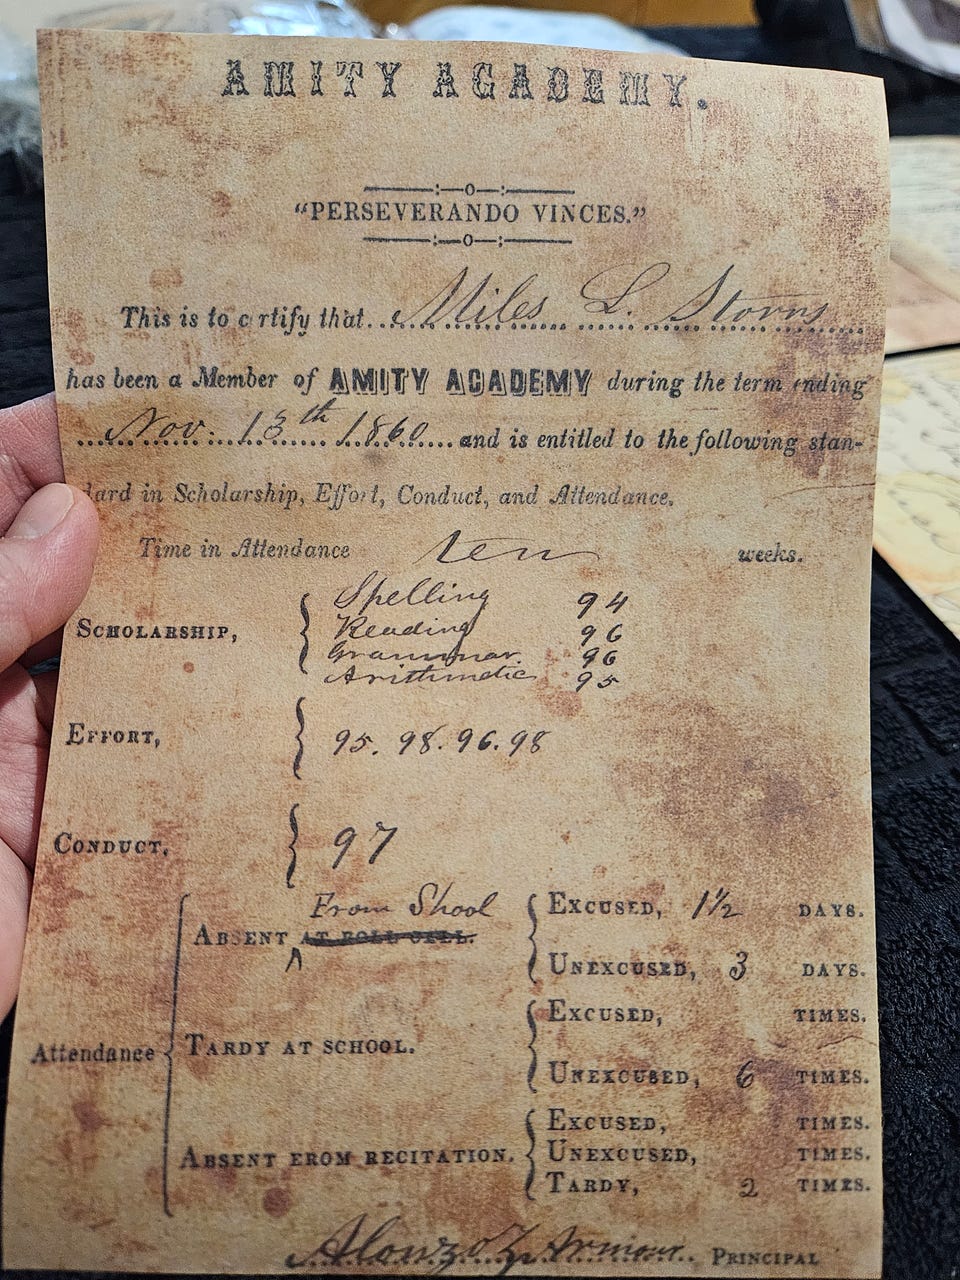 AMITY ACADEMY.
"PERSEVERANDO VINCES."
This is to c rtify that Miles L. Storrs
has been a Member of AMITY ACADEMY during the term ending
Nov. 13th 1860 and is entitled to the following stan-
dard in Scholarship, Effort, Conduct, and Attendance.
Time in Attendance ten weeks.
SCHOLARSHIP,
Spelling 94
Reading 96
Grammar 96
Arithmetic 95
EFFORT, 95. 98. 96. 98
CONDUCT, 97
Attendance
From Shool
ABSENT AT ROLL CALL.
EXCUSED, 1 1/2 DAYS.
UNEXCUSED, 3 DAYS.
TARDY AT SCHOOL.
EXCUSED, TIMES.
UNEXCUSED, 6 TIMES.
ABSENT FROM RECITATION.
EXCUSED, TIMES.
UNEXCUSED, TIMES.
TARDY, 2 TIMES.
Alonzo PRINCIPAL